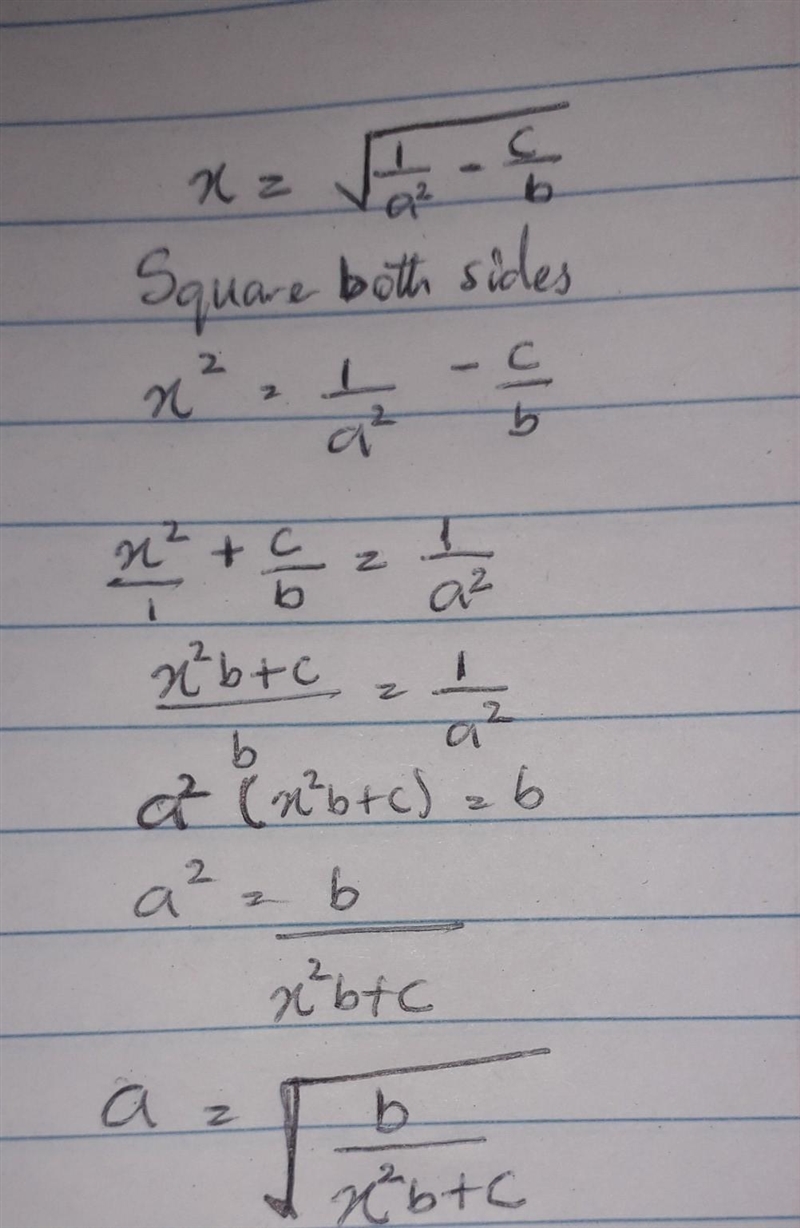 x = √(1/a² - c/b)
Square both sides
x² = 1/a² - c/b
x²/1 + c/b = 1/a²
(x²b+c)/b = 1/a²
a² (x²b+c) = b
a² = b/(x²b+c)
a = √(b/(x²b+c))